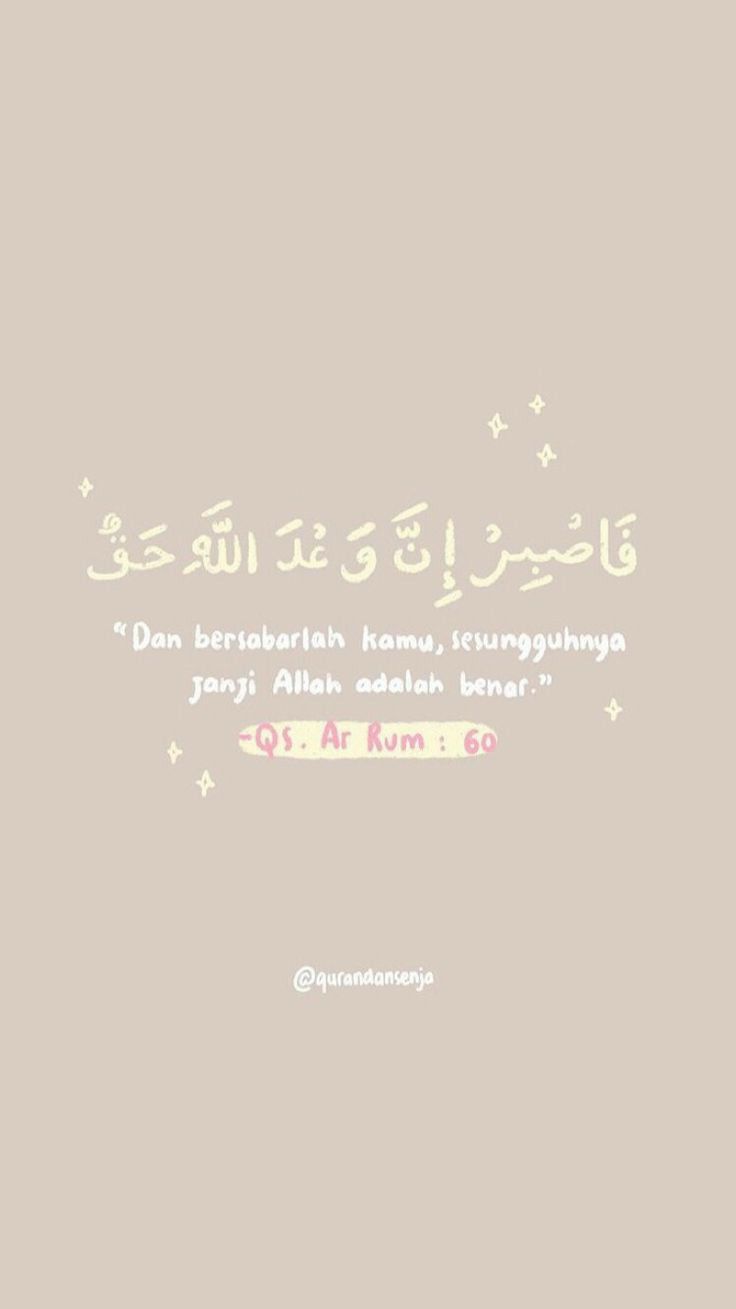 فَاصْبِرْ إِنَّ وَعْدَ اللَّهِ حَقٌّ
“Dan bersabarlah kamu, sesungguhnya
janji Allah adalah benar.”
-QS. Ar Rum : 60
@qurandansenja